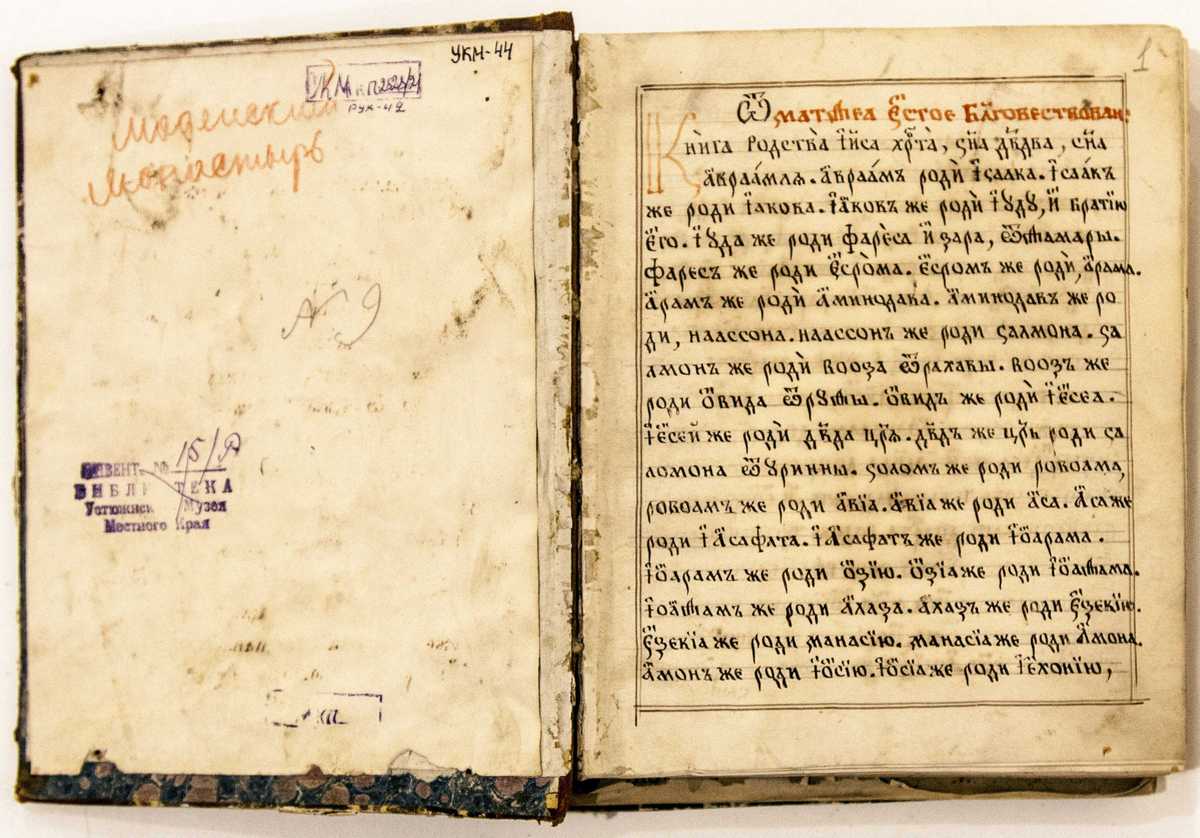 УКМ-44
УКМ
РУК-42
Моденский
Монастырь
№ 9
ИНВЕНТ. № 15/Р
БИБЛИОТЕКА
Устюженск Музея
Местного Края
КП
1
Ѿ матѳеа є҃стое бл҃говествован:
Книга родства і҆и҃са хрⷭ҇та, сн҃а дв҃два, сн҃а
а҆враа́млѧ. а҆враа́мъ родѝ і҆саака. і҆саа́къ
же роди і҆акова. і҆а҆ковъ же родѝ і҆ꙋдꙋ, и҆ братїю
є҆го. і҆ꙋда же роди фарѐса и҆ зара, ѿѳамары.
фаресъ же роди є҆сро̀ма. є҆сромъ же родѝ, а҆рама.
а҆рамъ же родѝ а҆минодава. а҆минодавъ же ро
ди, наассона. наассонъ же роди салмона. са
лмонъ же родѝ вооза ѿрахавы. воозъ же
роди ѻ҆вида ѿрꙋѳы. ѻ҆видъ же родѝ і҆ессеа.
і҆есей же родѝ дв҃да цр҃ѧ. дв҃дъ же цр҃ь роди са
ломона ѿꙋриины. соломъ же роди ровоама,
ровоамъ же роди а҆вїа. а҆вїа же роди а҆са. а҆са же
роди і҆а҆сафата. і҆а҆сафатъ же роди і҆ѻ҆арама.
і҆ѻ҆арамъ же роди ѻ҆зїю. ѻ҆зїа же роди і҆ѻ҆аѳама.
і҆оа҆ѳамъ же роди а҆хаза. а҆хазъ же роди є҆зекїю.
є҆зекїа же роди манасїю. манасїа же роди а҆мона.
а҆монъ же роди і҆ѻ҆сїю. і҆ѻ҆сїа же роди і҆е҆хонїю,